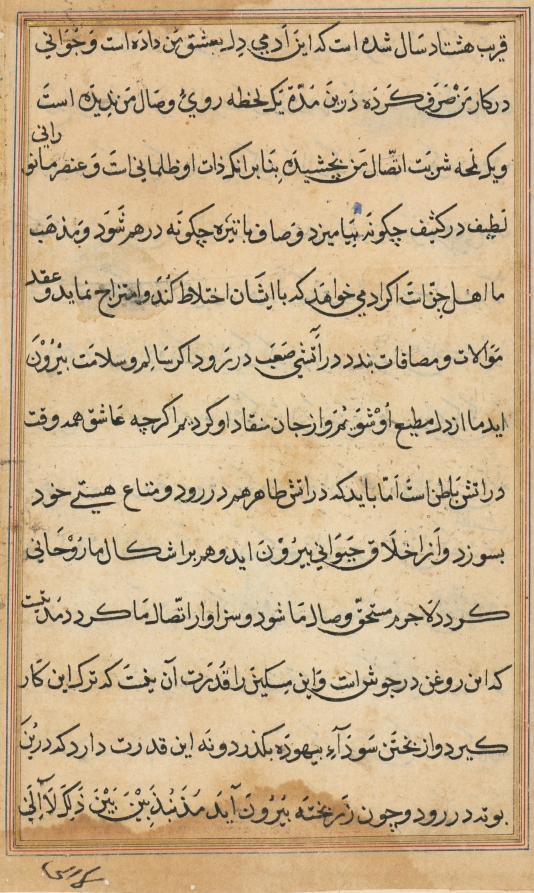 قریب هشتاد سال شده است که این آدمی دل بعشق من داده است و جوانی
در کار من صرف کرده درین مدة یک لحظه روی وصال من ندیده است
و یک لمحه شربت اتّصال من نچشیده بنابرانکه ذات او ظلمانی است و عنصر ما نورانی
لطیف در کثیف چکونه بیامیزد و صاف با تیره چکونه در هم شود و مذهب
ما اهل جن است اکر ادمی خواهد که با ایشان اختلاط کند و امتزاج نماید و عقد
موالات و مصافات بندد در آتشی صعب در رود اکر سالم و سلامت بیرون
اید ما از دل مطیع او شویم و از جان منقاد او کردیم اکرچه عاشق همه وقت
در اتش باطن است اما باید که در اتش ظاهر هم در رود و متاع هستی خود
بسوزد و از اخلاق حیوانی بیرون اید و هم بر اشکال ما روحانی
کردد لاجرم مستحق وصال ما شود و سزاوار اتّصال ما کردد مدتیست
که این روغن در جوش است و این مسکین را قدرت آن نیست که ترک این کار
کیرد و از پختن سودآء بیهوده بکذرد و نه این قدرت دارد که درین
بوته در رود و چون زر پخته بیرون آید مذبذبین بین ذلک لا الی